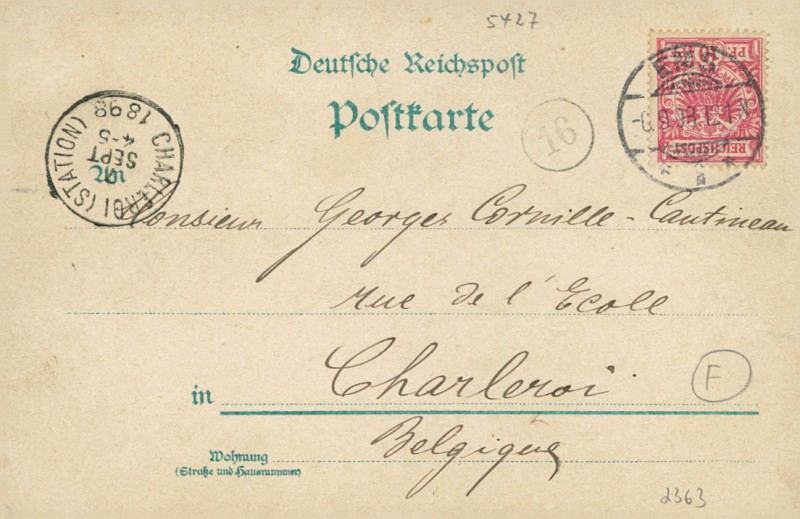 5427
Deutsche Reichspost
Postkarte
16
CHARLEROI (STATION)
4-5
SEPT
1898
REICHSPOST
An
Monsieur Georges Cornille-Cantineau
rue de l'Ecole
in Charleroi
F
Belgique
Wohnung
(Straße und Hausnummer)
2363